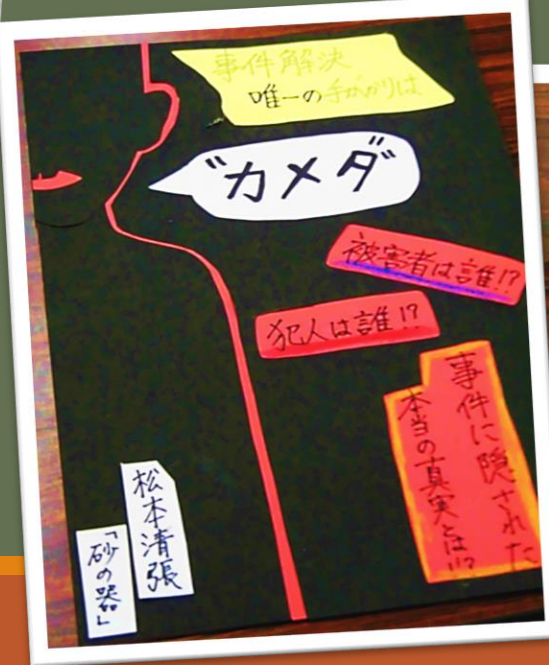 事件解決
唯一の手がかりは
"カメダ"
被害者は誰!?
犯人は誰!?
事件に隠された
本当の真実とは!?
松本清張
「砂の器」